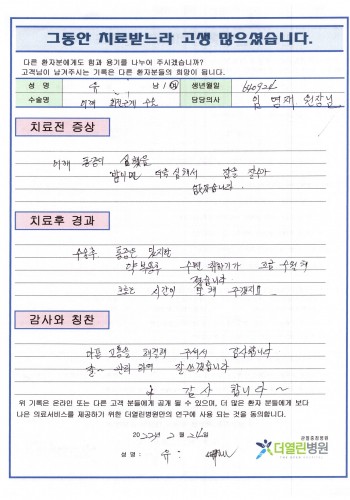 그동안 치료받느라 고생 많으셨습니다.
다른 환자분에게도 힘과 용기를 나누어 주시겠습니까?
고객님이 남겨주시는 기록은 다른 환자분들의 희망이 됩니다.
성 명 유 남 / 여 생년월일 640924
수술명 어깨 회전근개 수술 담당의사 임 명재 원장님
치료전 증상
어깨 통증이 심했음
밤이면 더욱 심해서 잠을 잘수가
없었습니다
치료후 경과
수술후 통증은 있지만
약 복용후 수면 취하기가 조금 수월해
졌습니다
시간이
감사와 칭찬
고통을 해결해 주셔서 감사합니다
관리 하며 잘 쓰겠습니다
감사 합니다~
위 기록은 온라인 또는 다른 고객 분들에게 공개 될 수 있으며, 더 많은 환자 분들에게 보다
나은 의료서비스를 제공하기 위한 더열린병원만의 연구에 사용 되는 것을 동의합니다.
2023년 2월 24일
성 명 : 유
관절중점병원
더열린병원